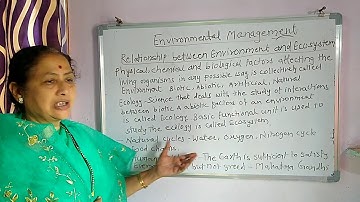 Environmental Management
Relationship between Environment and Ecosystem
Physical, chemical and biological factors affecting the
living organisms in any possible way is collectively called
Environment. Biotic, Abiotic, Artificial, Natural
Ecology - Science that deals with the study of interactions
between biotic & abiotic factors of an environment
is called Ecology. Basic functional unit is used to
study the ecology is called Ecosystem
Natural Cycles - Water, Oxygen, Nitrogen cycle
Food chains.
Human - The Earth is sufficient to satisfy
but not greed - Mahatma Gandhi